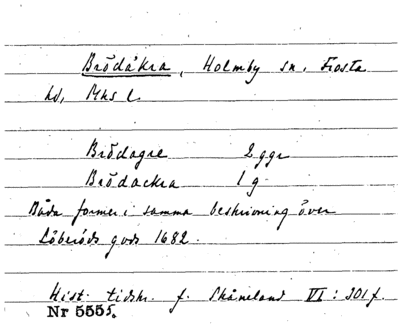 Brödåkra, Holmby sn, Frosta
hd, Mhs l.
Brödagre 2 ggr
Brödackra 1 g
Båda former i samma beskrivning över
Löberöds gods 1682.
Hist. tidskr. f. Skåneland VI: 301 f.
Nr 5555.